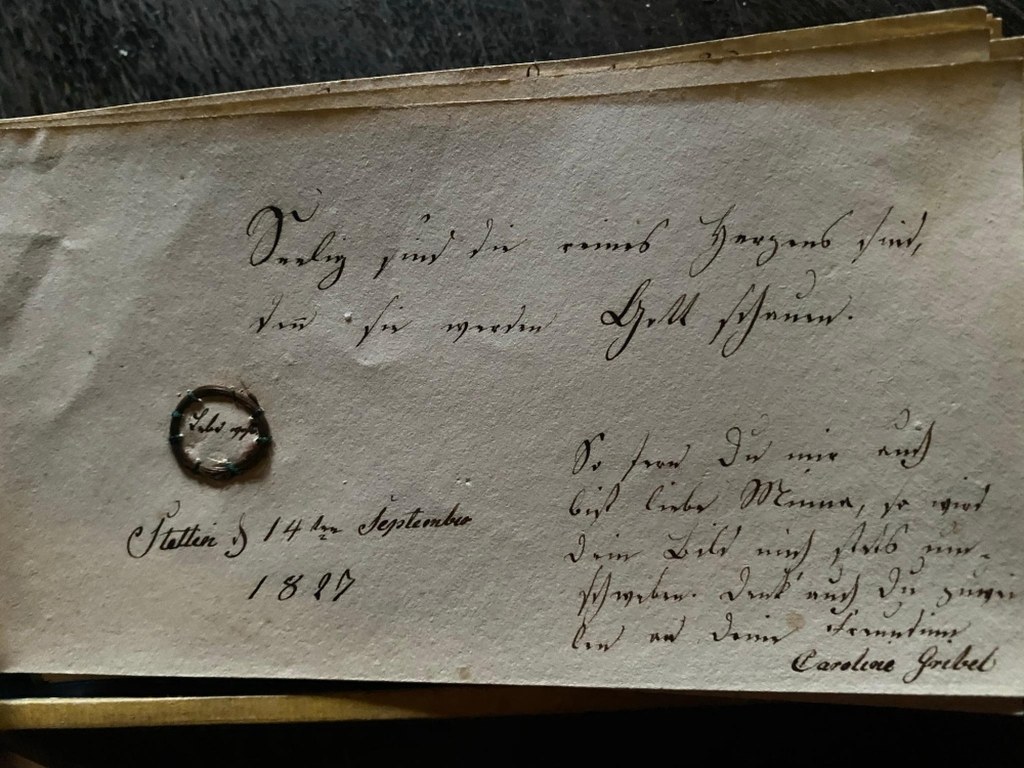 Seelig sind die reines Herzens sind,
denn sie werden Gott schauen.
Lebe
Stettin d 14ten September
1827
So fern Du mir auch
bist liebe Minna, so wird
Dein Bild mich stets um-
schweben. Denk' auch Du zuwei
len an Deine Freundinn
Caroline Gribel